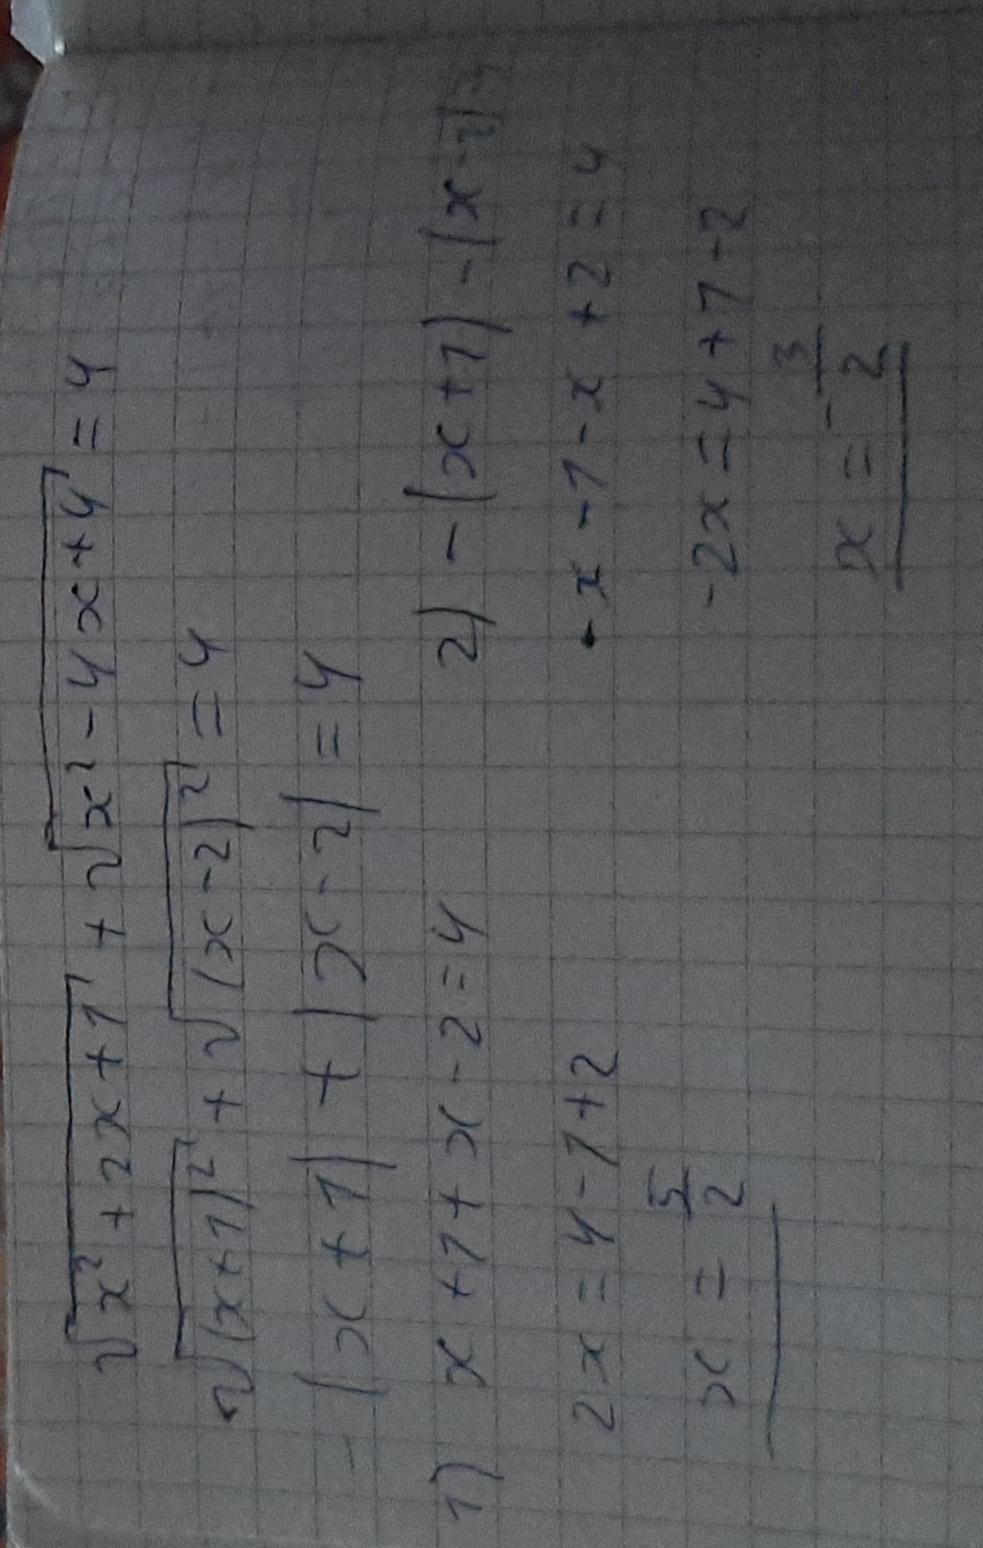 √x²+2x+1 + √x²-4x+4 = 4
√(x+1)² + √(x-2)² = 4
= |x+1| + |x-2| = 4
1) x+1+x-2=4
2x=4-1+2
x=5/2
2) -(x+1)-(x-2)=
-x-1-x+2=4
-2x=4+1-2
x=-3/2